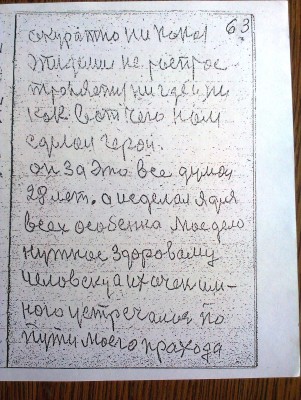 63
акуратно ни кака
эти деши не рострос
троняти ни где и ни
как вот чего нам
сделал герой.
он за это все думал
28 лет. а и сделал я для
всех особенка мое дело
нужное здоровому
человеку а их очен мн-
ного устречался по
пути моего прахода